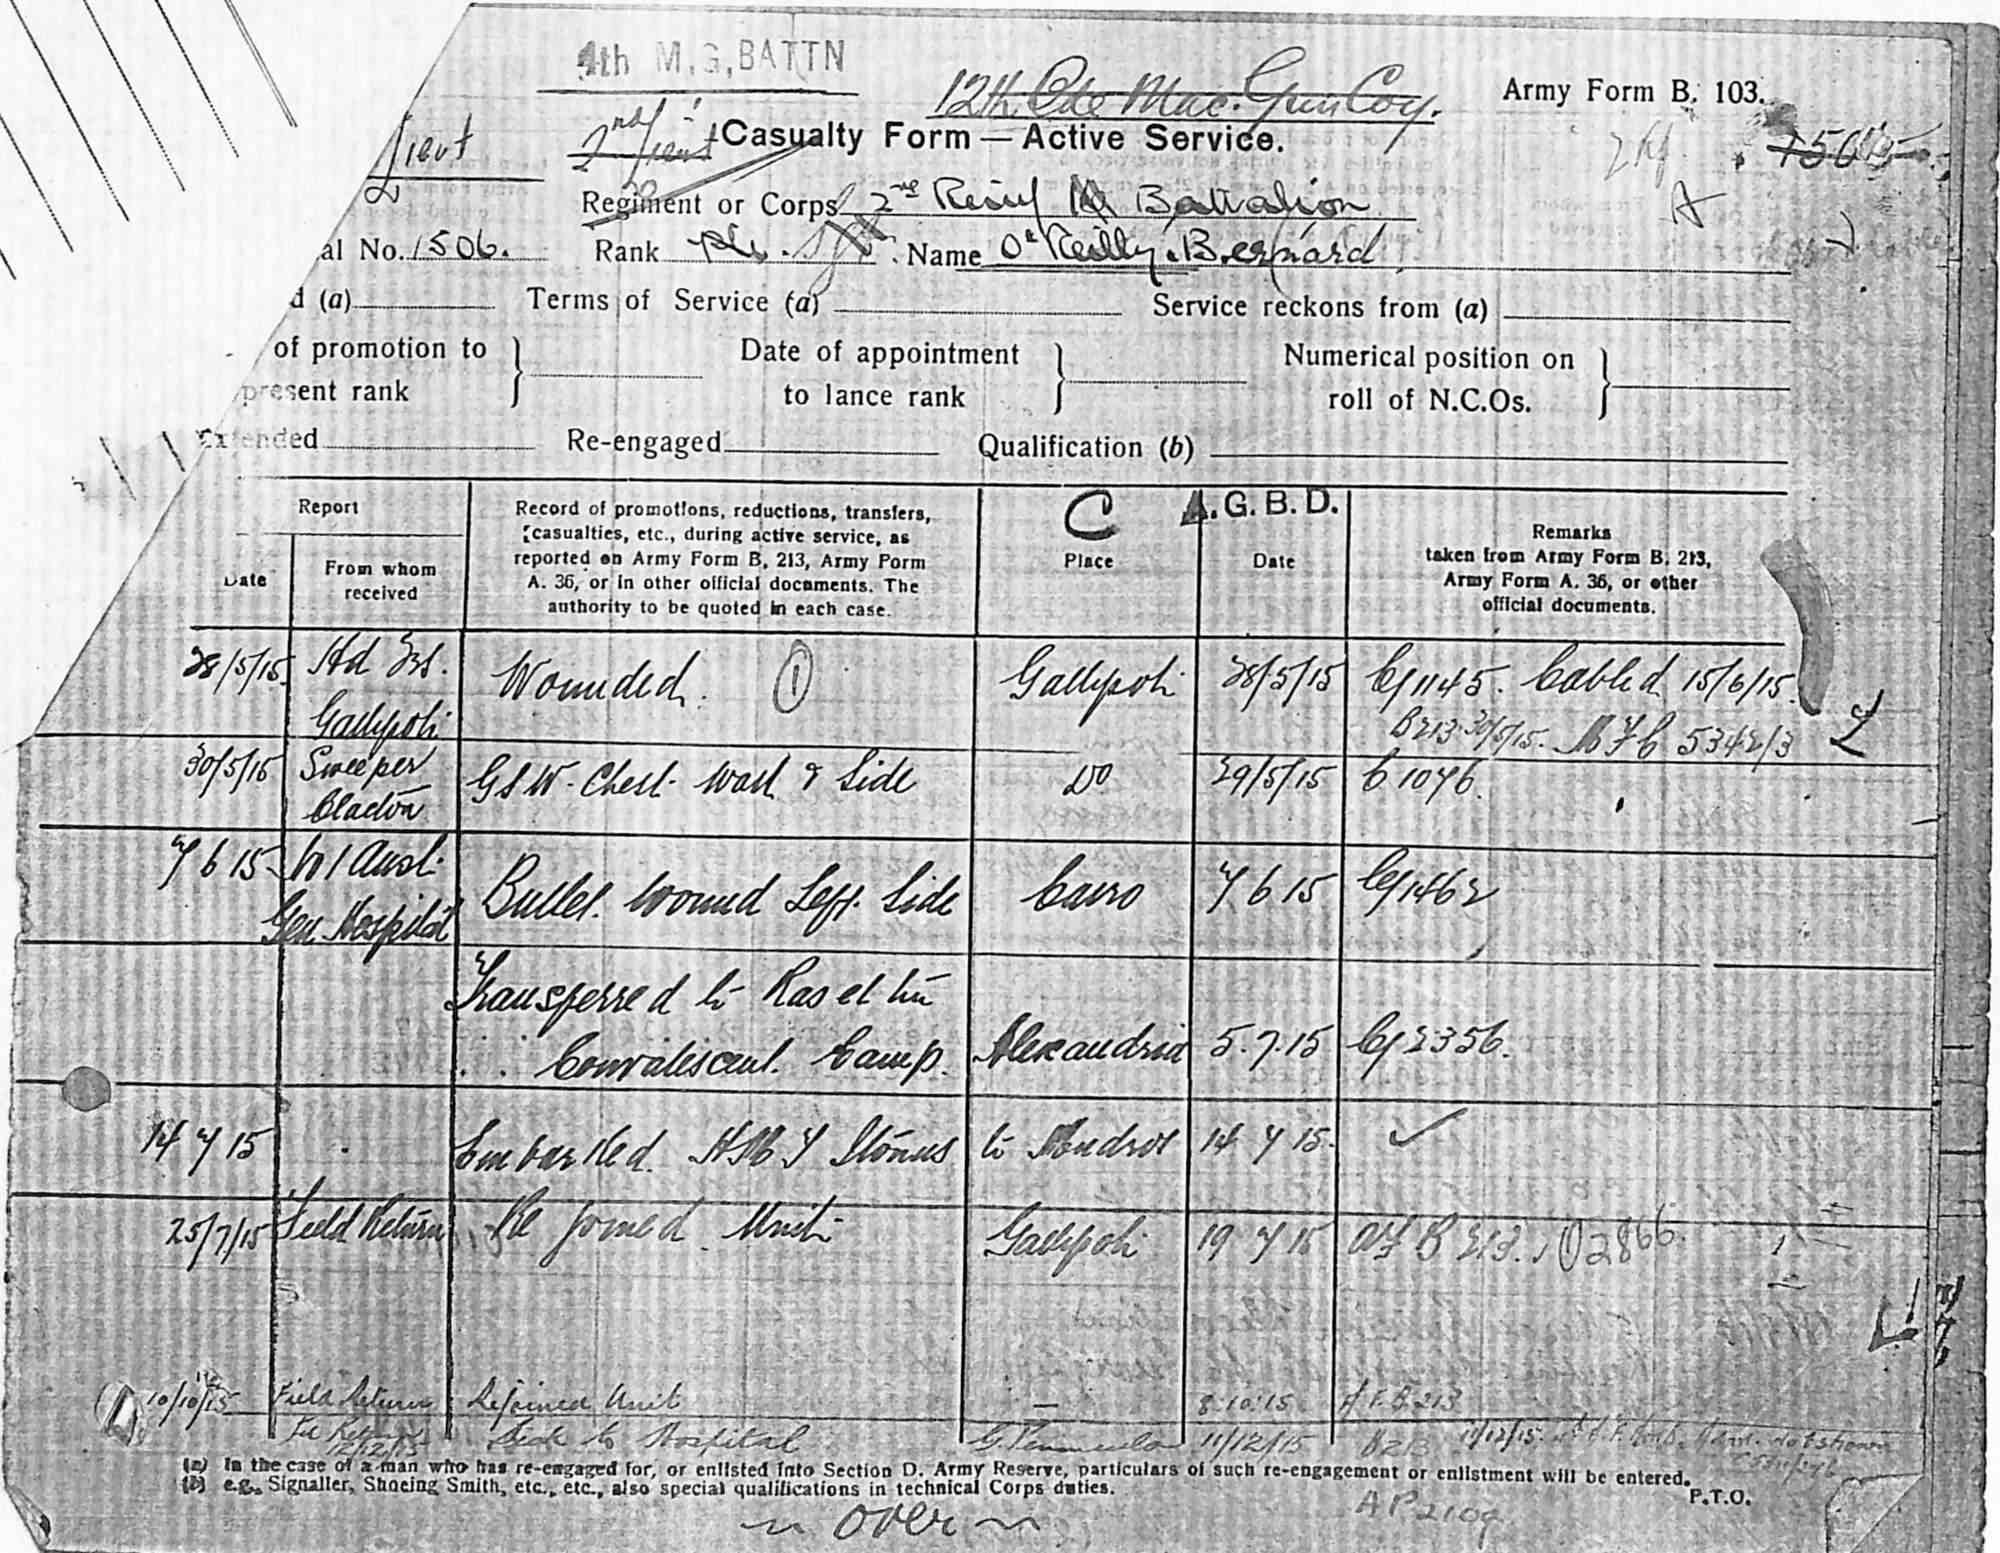 4th M.G. BATTN
12th Cde Mac. Gun Coy.
Army Form B. 103.
Lieut
2nd Lieut
Casualty Form — Active Service.
Regiment or Corps 2nd Reinf Battalion
al No. 1506. Rank Pte. Sgt. Name O'Reilly. Bernard
d (a) Terms of Service (a) Service reckons from (a)
of promotion to present rank
Date of appointment to lance rank
Numerical position on roll of N.C.Os.
Extended Re-engaged Qualification (b)
C A.G.B.D.
Report
Date
From whom received
Record of promotions, reductions, transfers, casualties, etc., during active service, as reported on Army Form B, 213, Army Form A. 36, or in other official documents. The authority to be quoted in each case.
Place
Date
Remarks taken from Army Form B. 213, Army Form A. 36, or other official documents.
28/5/15 Gallipoli Wounded. 1 Gallipoli 28/5/15 Cg1145. Cabled 15/6/15.
B213 30/5/15. 5342/3
30/5/15 Sweeper Clacton GSW. Chest. Wall & Side Do 29/5/15 C1076.
7 6 15 No 1 Aust. Gen Hospital Bullet. Wound Left. Side Cairo 7 6 15 Cg1462
Transferred to Ras el tin
Convalescent. Camp. Alexandria 5.7.15 Cg2356.
14 7 15 Embarked. to Mudros 14 7 15.
25/7/15 Field Return Re joined Unit Gallipoli 19 7 15 AF B 213. 2866.
10/10/15 Field Return Rejoined Unit — 8.10.15 A.F.B.213
12/12/15 Sick to Hospital G. Peninsula 11/12/15 B213 not shown
(a) In the case of a man who has re-engaged for, or enlisted into Section D. Army Reserve, particulars of such re-engagement or enlistment will be entered.
(b) e.g., Signaller, Shoeing Smith, etc., etc., also special qualifications in technical Corps duties.
P.T.O.
~ over ~